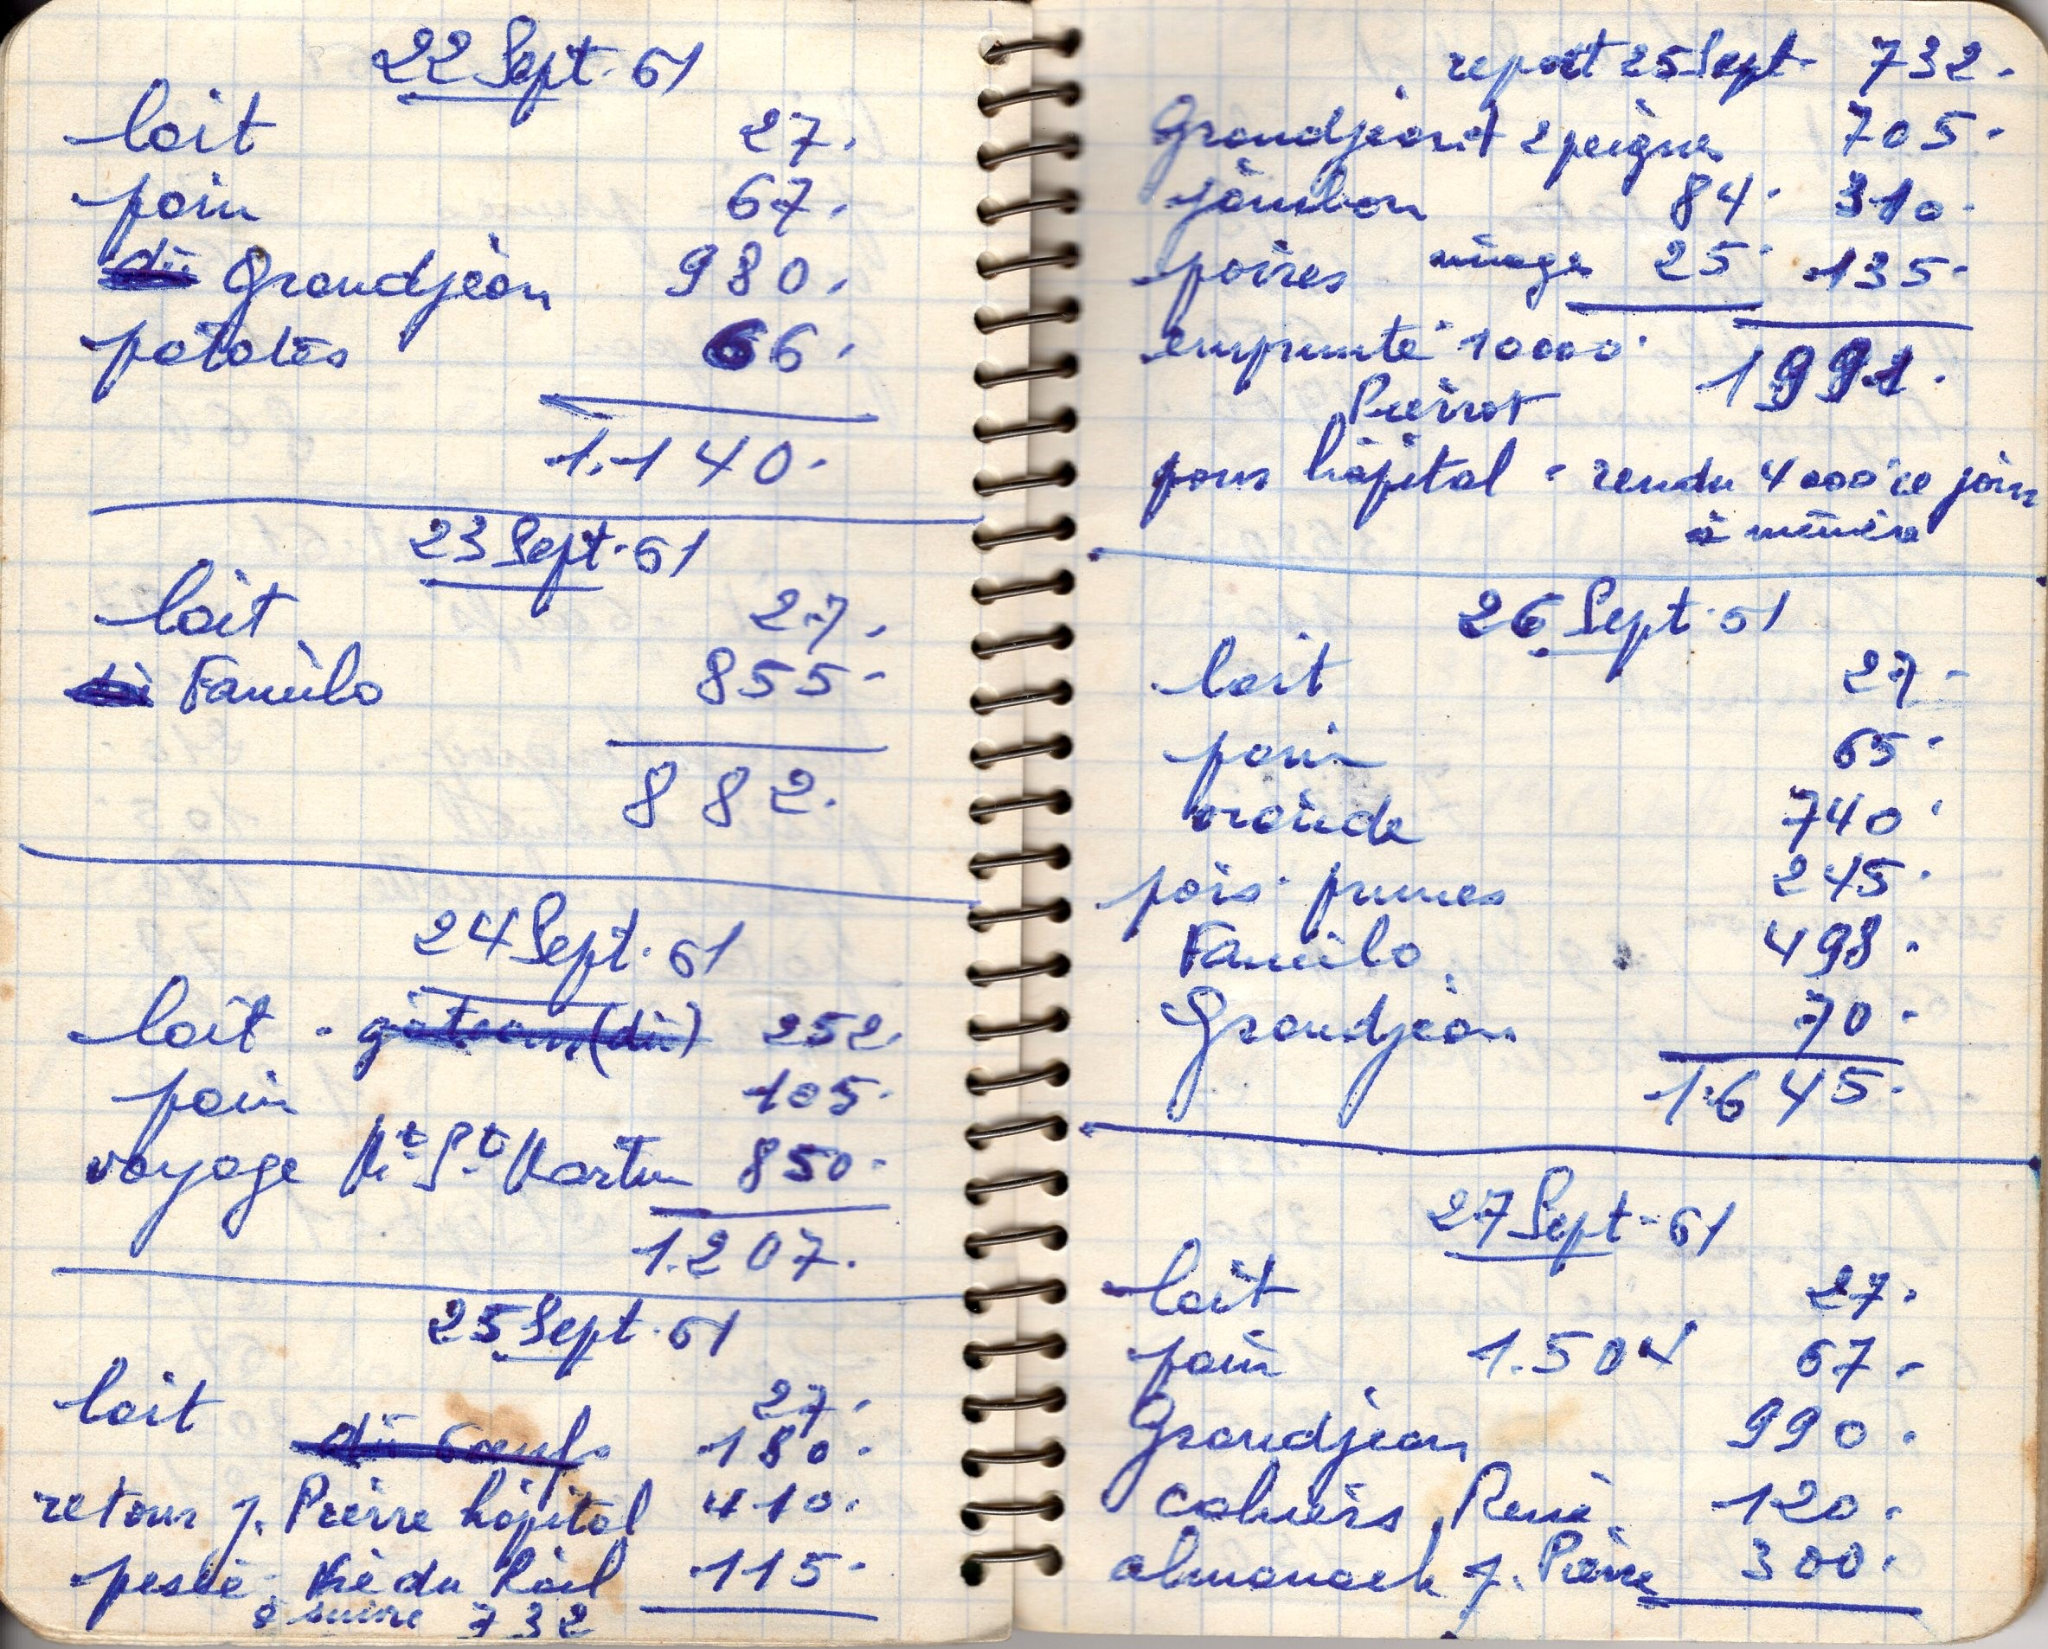 22 Sept. 61
lait 27.
pain 67.
dû Grandjean 980.
patates 66.
1.140.
23 Sept. 61
lait 27.
dû Familo 855-
882.
24 Sept. 61
lait - gâteaux (dû) 252.
pain 105.
voyage Mt St Martin 850-
1.207.
25 Sept. 61
lait 27.
dû 6 oeufs 180.
retour J. Pierre hôpital 410.
Vie du Rail 115-
à suivre 732
report 25 Sept. 732.
Grandjean et 2 peignes 705.
jambon 84. 310.
poires 25. 135-
emprunté 10000. 1991.
Pierrot
pour hôpital - rendu 4000 ce jour
à mémère
26 Sept. 61
lait 27-
pain 65.
viande 740.
pois. prunes 245.
Familo 498.
Grandjean 70.
1.645.
27 Sept. 61
lait 27.
pain 1.504 67.
Grandjean 990.
cahiers René 120.
almanach J. Pierre 300.